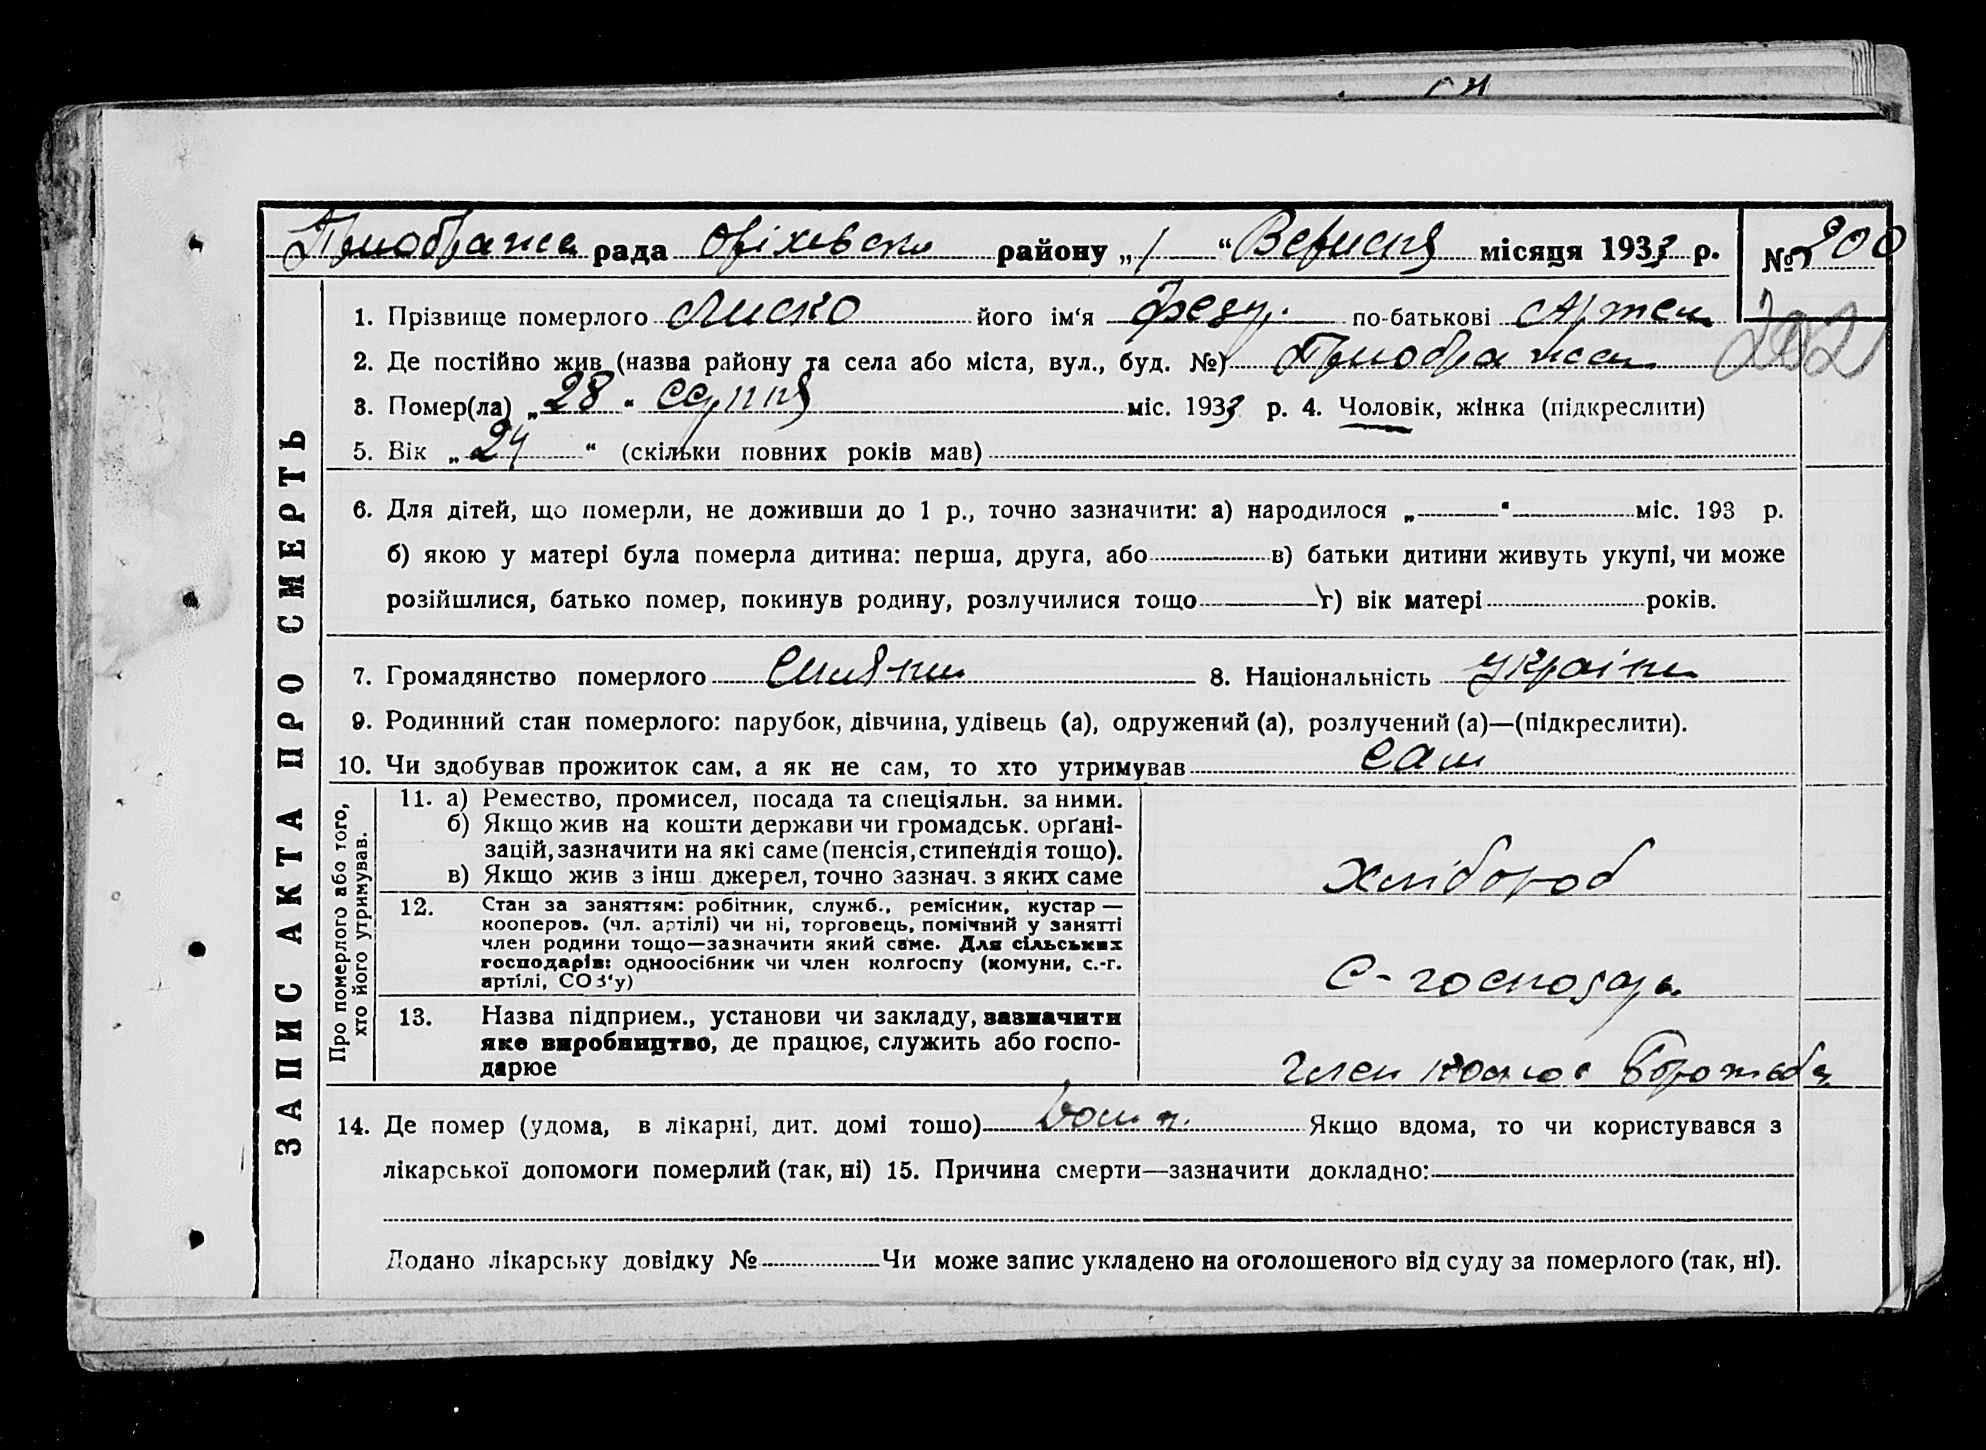 Приображен рада Оріхівсько району „1“ Вересня місяця 1933 р. № 200
1. Прізвище померлого Лиско його ім'я Федір. по-батькові Артем
202
2. Де постійно жив (назва району та села або міста, вул., буд. №) Приображен
3. Помер(ла) „28“ серпня міс. 1933 р. 4. Чоловік, жінка (підкреслити)
5. Вік „24“ (скільки повних років мав)
6. Для дітей, що померли, не доживши до 1 р., точно зазначити: а) народилося „ “ міс. 193 р.
б) якою у матері була померла дитина: перша, друга, або в) батьки дитини живуть укупі, чи може
розійшлися, батько помер, покинув родину, розлучилися тощо г) вік матері років.
7. Громадянство померлого 8. Національність україн
9. Родинний стан померлого: парубок, дівчина, удівець (а), одружений (а), розлучений (а)—(підкреслити).
10. Чи здобував прожиток сам, а як не сам, то хто утримував сам
ЗАПИС АКТА ПРО СМЕРТЬ
Про померлого або того,
хто його утримував.
11. а) Ремество, промисел, посада та спеціяльн. за ними.
б) Якщо жив на кошти держави чи громадськ. орґані-
зацій, зазначити на які саме (пенсія, стипендія тощо).
в) Якщо жив з інш джерел, точно зазнач. з яких саме
Хлібороб
12. Стан за заняттям: робітник, служб., ремісник, кустар —
кооперов. (чл. артілі) чи ні, торговець, помічний у занятті
член родини тощо—зазначити який саме. Для сільських
господарів: одноосібник чи член колгоспу (комуни, с.-г.
артілі, СОЗ'у)
С-господар.
13. Назва підприєм., установи чи закладу, зазначити
яке виробництво, де працює, служить або госпо-
дарює
член колгос Боротьба
14. Де помер (удома, в лікарні, дит. домі тощо) Якщо вдома, то чи користувався з
лікарської допомоги померлий (так, ні) 15. Причина смерти—зазначити докладно:
Додано лікарську довідку № Чи може запис укладено на оголошеного від суду за померлого (так, ні).